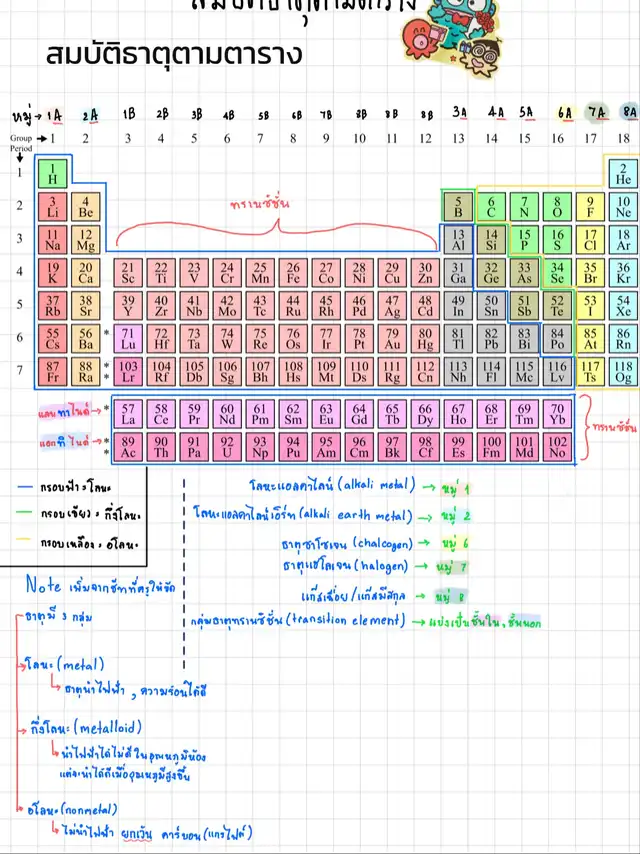 สมบัติธาตุตามตาราง
สมบัติธาตุตามตาราง
หมู่ → 1A 2A 1B 2B 3B 4B 5B 6B 7B 8B 8B 8B 3A 4A 5A 6A 7A 8A
Group → 1 2 3 4 5 6 7 8 9 10 11 12 13 14 15 16 17 18
Period
1 1 H 2 He
ทรานซิชั่น
2 3 Li 4 Be 5 B 6 C 7 N 8 O 9 F 10 Ne
3 11 Na 12 Mg 13 Al 14 Si 15 P 16 S 17 Cl 18 Ar
4 19 K 20 Ca 21 Sc 22 Ti 23 V 24 Cr 25 Mn 26 Fe 27 Co 28 Ni 29 Cu 30 Zn 31 Ga 32 Ge 33 As 34 Se 35 Br 36 Kr
5 37 Rb 38 Sr 39 Y 40 Zr 41 Nb 42 Mo 43 Tc 44 Ru 45 Rh 46 Pd 47 Ag 48 Cd 49 In 50 Sn 51 Sb 52 Te 53 I 54 Xe
6 55 Cs 56 Ba * 71 Lu 72 Hf 73 Ta 74 W 75 Re 76 Os 77 Ir 78 Pt 79 Au 80 Hg 81 Tl 82 Pb 83 Bi 84 Po 85 At 86 Rn
7 87 Fr 88 Ra * * 103 Lr 104 Rf 105 Db 106 Sg 107 Bh 108 Hs 109 Mt 110 Ds 111 Rg 112 Cn 113 Nh 114 Fl 115 Mc 116 Lv 117 Ts 118 Og
แลนทาไนด์ → * 57 La 58 Ce 59 Pr 60 Nd 61 Pm 62 Sm 63 Eu 64 Gd 65 Tb 66 Dy 67 Ho 68 Er 69 Tm 70 Yb
ทรานซิชั่น
แอกทิไนด์ → * * 89 Ac 90 Th 91 Pa 92 U 93 Np 94 Pu 95 Am 96 Cm 97 Bk 98 Cf 99 Es 100 Fm 101 Md 102 No
กรอบฟ้า = โลหะ
กรอบเขียว = กึ่งโลหะ
กรอบเหลือง = อโลหะ
โลหะแอลคาไลน์ (alkali metal) → หมู่ 1
โลหะแอลคาไลน์เอิร์ท (alkali earth metal) → หมู่ 2
ธาตุชาโซเจน (chalcogen) → หมู่ 6
ธาตุแฮโลเจน (halogen) → หมู่ 7
แก๊สเฉื่อย / แก๊สมีสกุล → หมู่ 8
กลุ่มธาตุทรานซิชั่น (transition element) → แบ่งเป็นชั้นใน, ชั้นนอก
Note เพิ่มจากชีทที่ครูให้จัด
ธาตุมี 3 กลุ่ม
โลหะ (metal)
ธาตุนำไฟฟ้า , ความร้อนได้ดี
กึ่งโลหะ (metalloid)
นำไฟฟ้าได้ไม่ดีในอุณหภูมิห้อง
แต่จะนำได้ดีเมื่ออุณหภูมิสูงขึ้น
อโลหะ (nonmetal)
ไม่นำไฟฟ้า ยกเว้น คาร์บอน (แกรไฟต์)